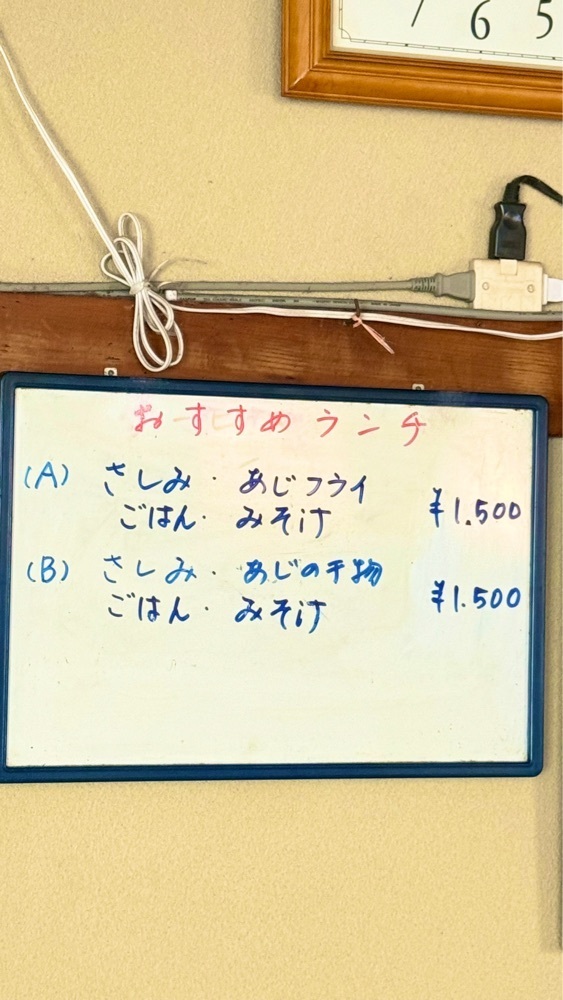 7 6 5
おすすめランチ
(A) さしみ・あじフライ
ごはん・みそ汁 ¥1.500
(B) さしみ・あじの干物
ごはん・みそ汁 ¥1.500